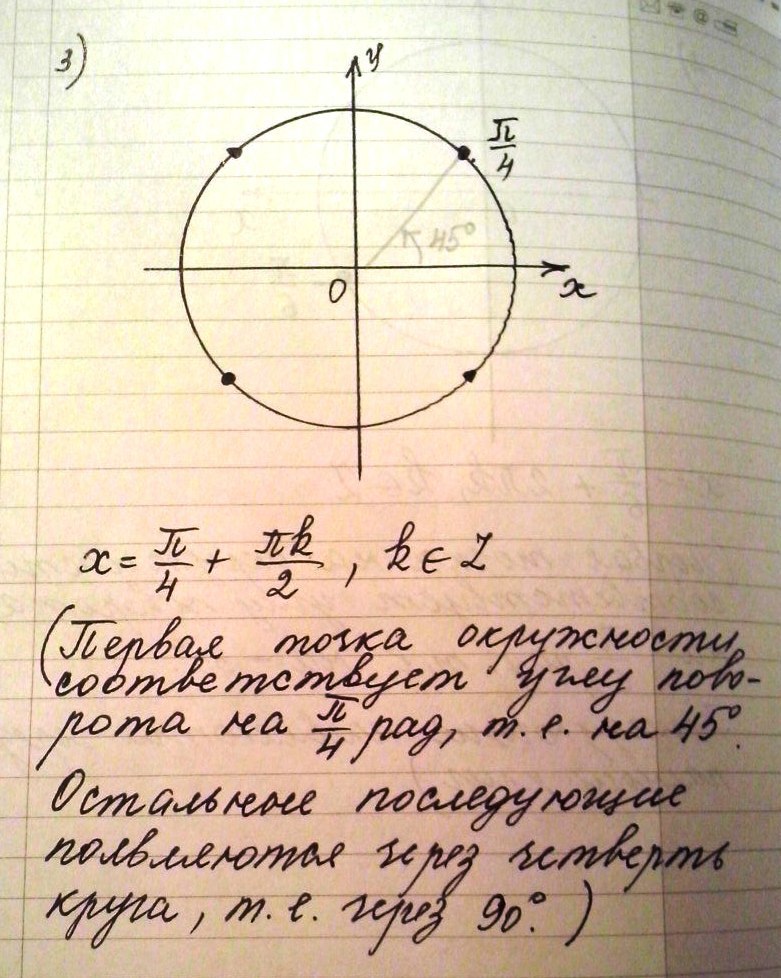 3)
y
π/4
45°
0
x
x = π/4 + πk/2 , k ∈ Z
(Первая точка окружности
соответствует углу пово-
рота на π/4 рад, т. е. на 45°.
Остальные последующие
появляются через четверть
круга, т. е. через 90°.)